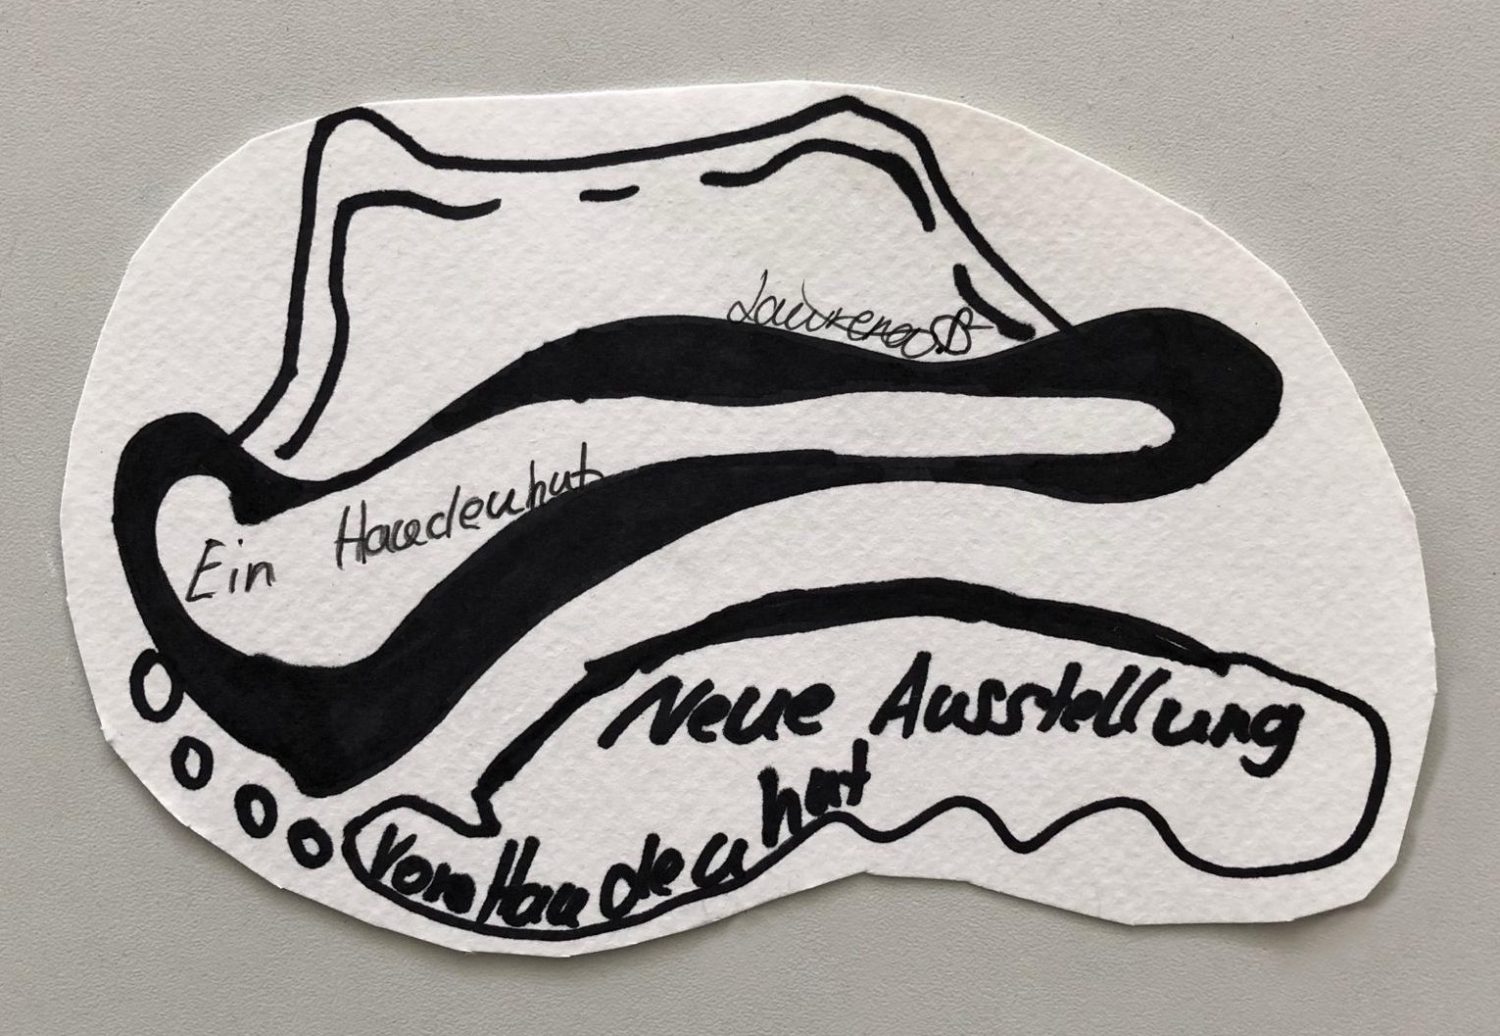 Lawrence B
Ein Haudenhut
Neue Ausstellung
Vom Hauden
hut